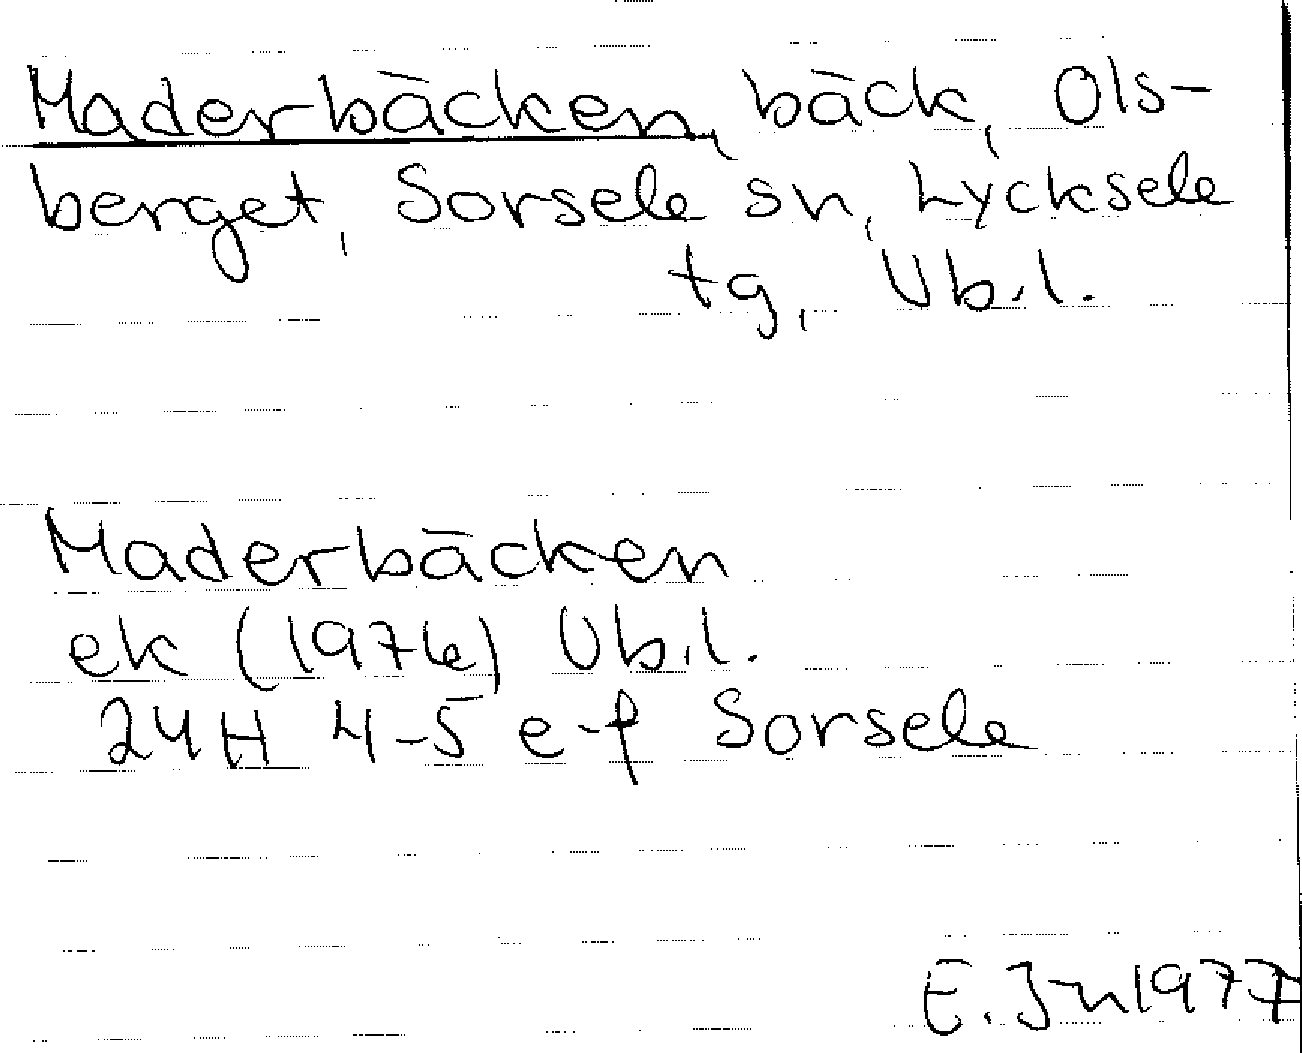 Maderbäcken, bäck, Ols-
berget, Sorsele sn, Lycksele
tg, Vb.l.
Maderbäcken
ek (1976) Vb.l.
24H 4-5 e-f Sorsele
E. Jn 1977